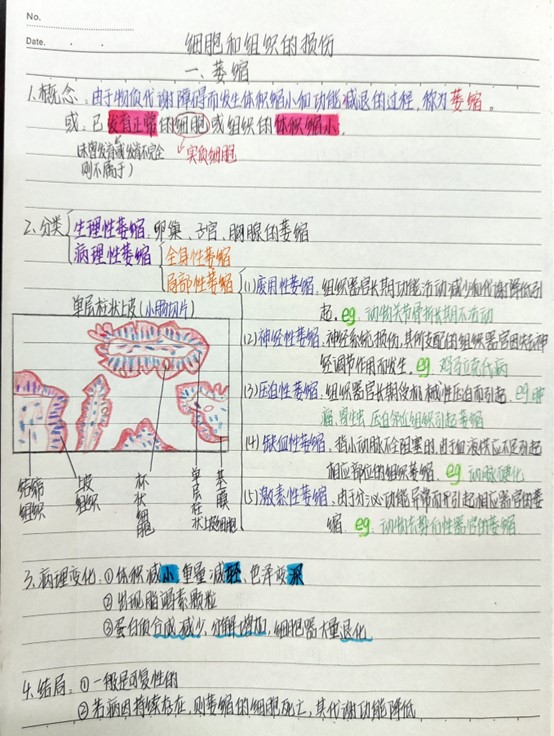 No.
Date.
细胞和组织的损伤
一、萎缩
1.概念：由于物质代谢障碍而发生体积缩小和功能减退的过程，称为萎缩。
或：已发育正常的细胞或组织的体积缩小。
(未曾发育或发育不完全 实质细胞
则不属于)
2.分类 生理性萎缩：卵巢、子宫、胸腺的萎缩
病理性萎缩 全身性萎缩
局部性萎缩
(1)废用性萎缩：组织器官长期功能活动减少和代谢降低引
起。eg.动物关节骨折长期不活动
(2)神经性萎缩：神经系统损伤，其所支配的组织器官因失去神
经调节作用而发生。eg.鸡马立克氏病
(3)压迫性萎缩：组织器官长期受机械性压迫而引起。eg.肿
瘤、寄生虫 压迫邻位组织引起萎缩
(4)缺血性萎缩：指小动脉不全阻塞时，由于血液供应不足引起
相应部位的组织萎缩。eg.动脉硬化
(5)激素性萎缩：由于分泌功能异常而引起相应器官的萎
缩。eg.动物去势后性器官的萎缩
单层柱状上皮(小肠切片)
结缔组织
上皮组织
杯状细胞
单层柱状上皮细胞
基膜
3.病理变化：①体积减小，重量减轻，色泽变深
②出现脂褐素颗粒
③蛋白质合成减少，分解增加，细胞器大量退化
4.结局：①一般是可复性的
②若病因持续存在，则萎缩的细胞死亡，其代谢功能降低